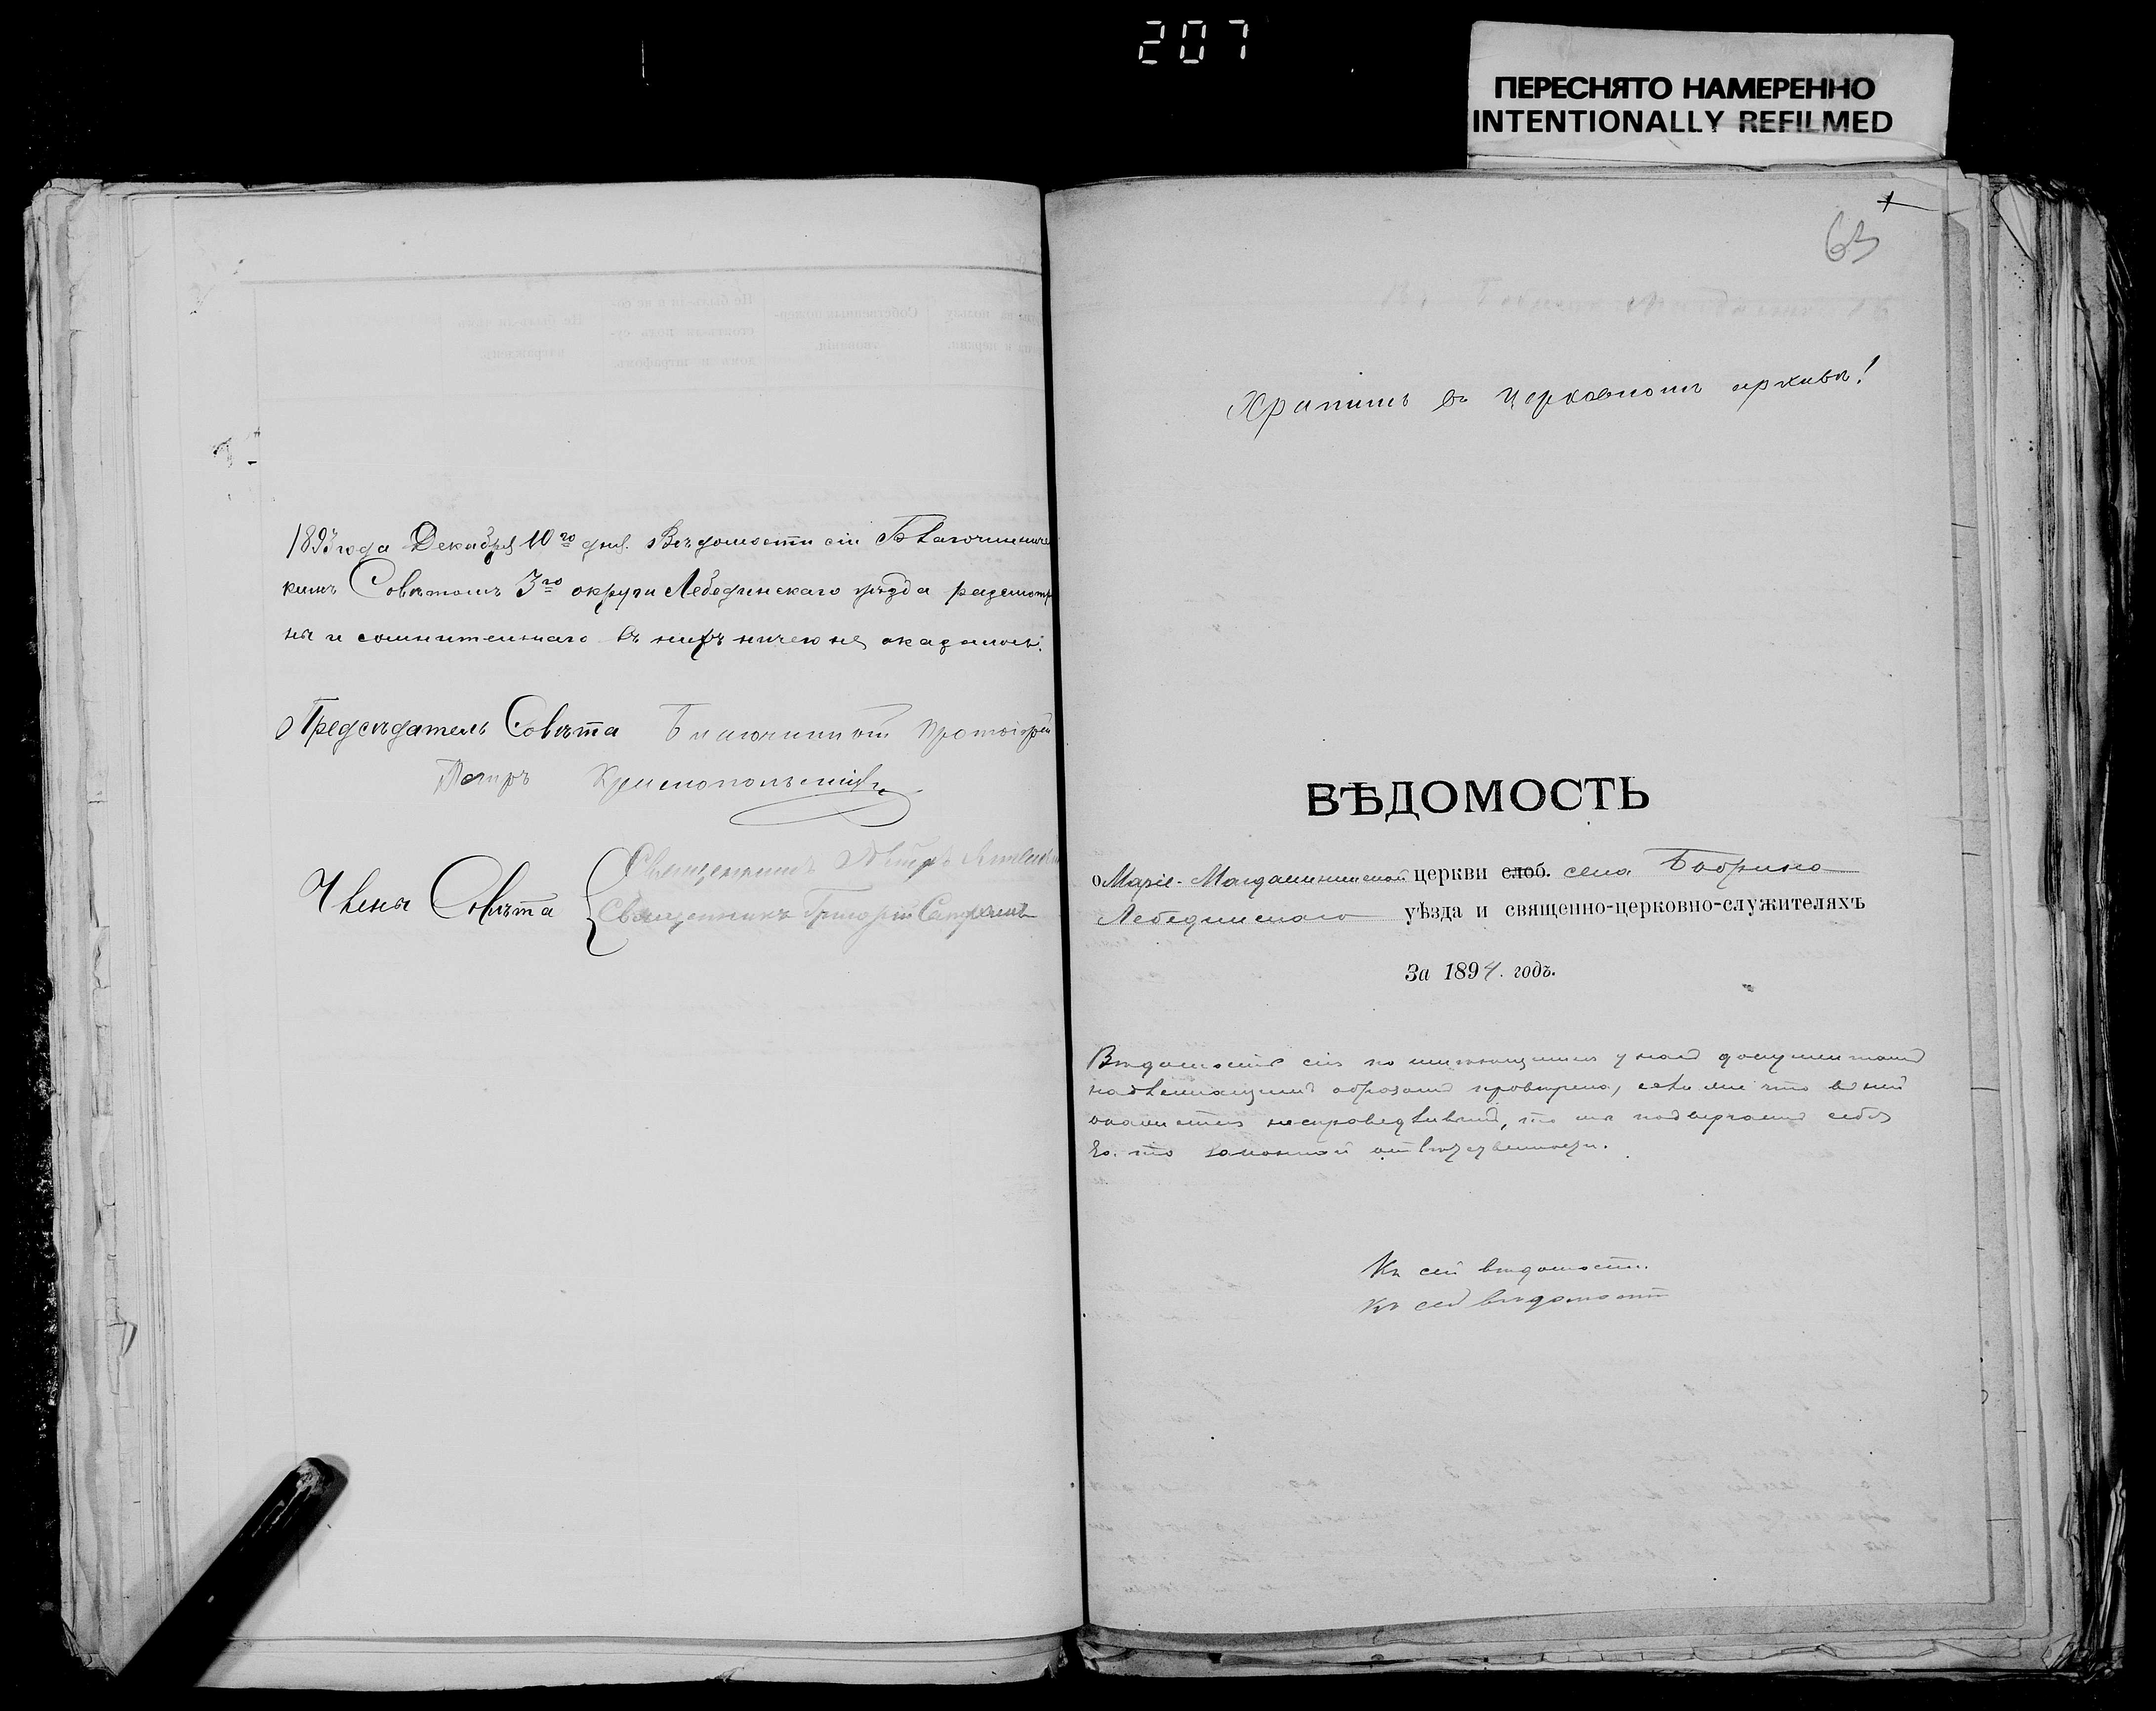 207
ПЕРЕСНЯТО НАМЕРЕННО
INTENTIONALLY REFILMED
1893 года Декабря 10го дня. Вѣдомости сіи Благочинниче
кимъ Совѣтомъ 3го округа Лебединскаго уѣзда разсмотрѣ
ны и сомнительнаго въ нихъ ничего не оказалось.
Предсѣдатель Совѣта Благочинный Протоіерей
Петръ
Члены Совѣта
Священникъ
Священникъ Григорій
63
Хранить въ церковномъ архивѣ!
ВѢДОМОСТЬ
о Маріе-Магдалининской церкви слоб. села Бобрика
Лебединскаго уѣзда и священно-церковно-служителяхъ
За 1894. годъ.
Вѣдомость сія по имѣющимся у насъ документамъ
надлежащимъ образомъ провѣрена, если же что въ ней
окажется несправедливымъ, то мы подвергаемъ себя
за то законной отвѣтственности.
Къ сей вѣдомости.
Къ сей вѣдомости